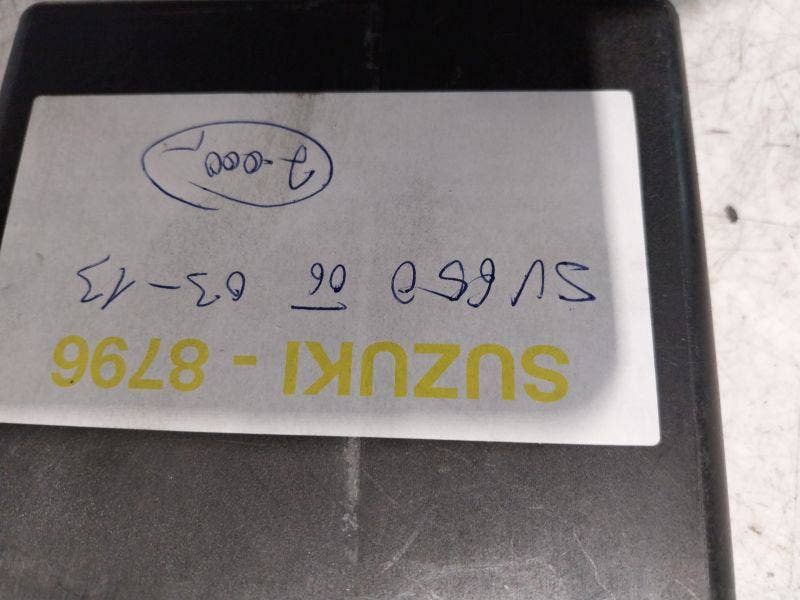 SUZUKI - 8796
SV650 06 03-13
2-000,-